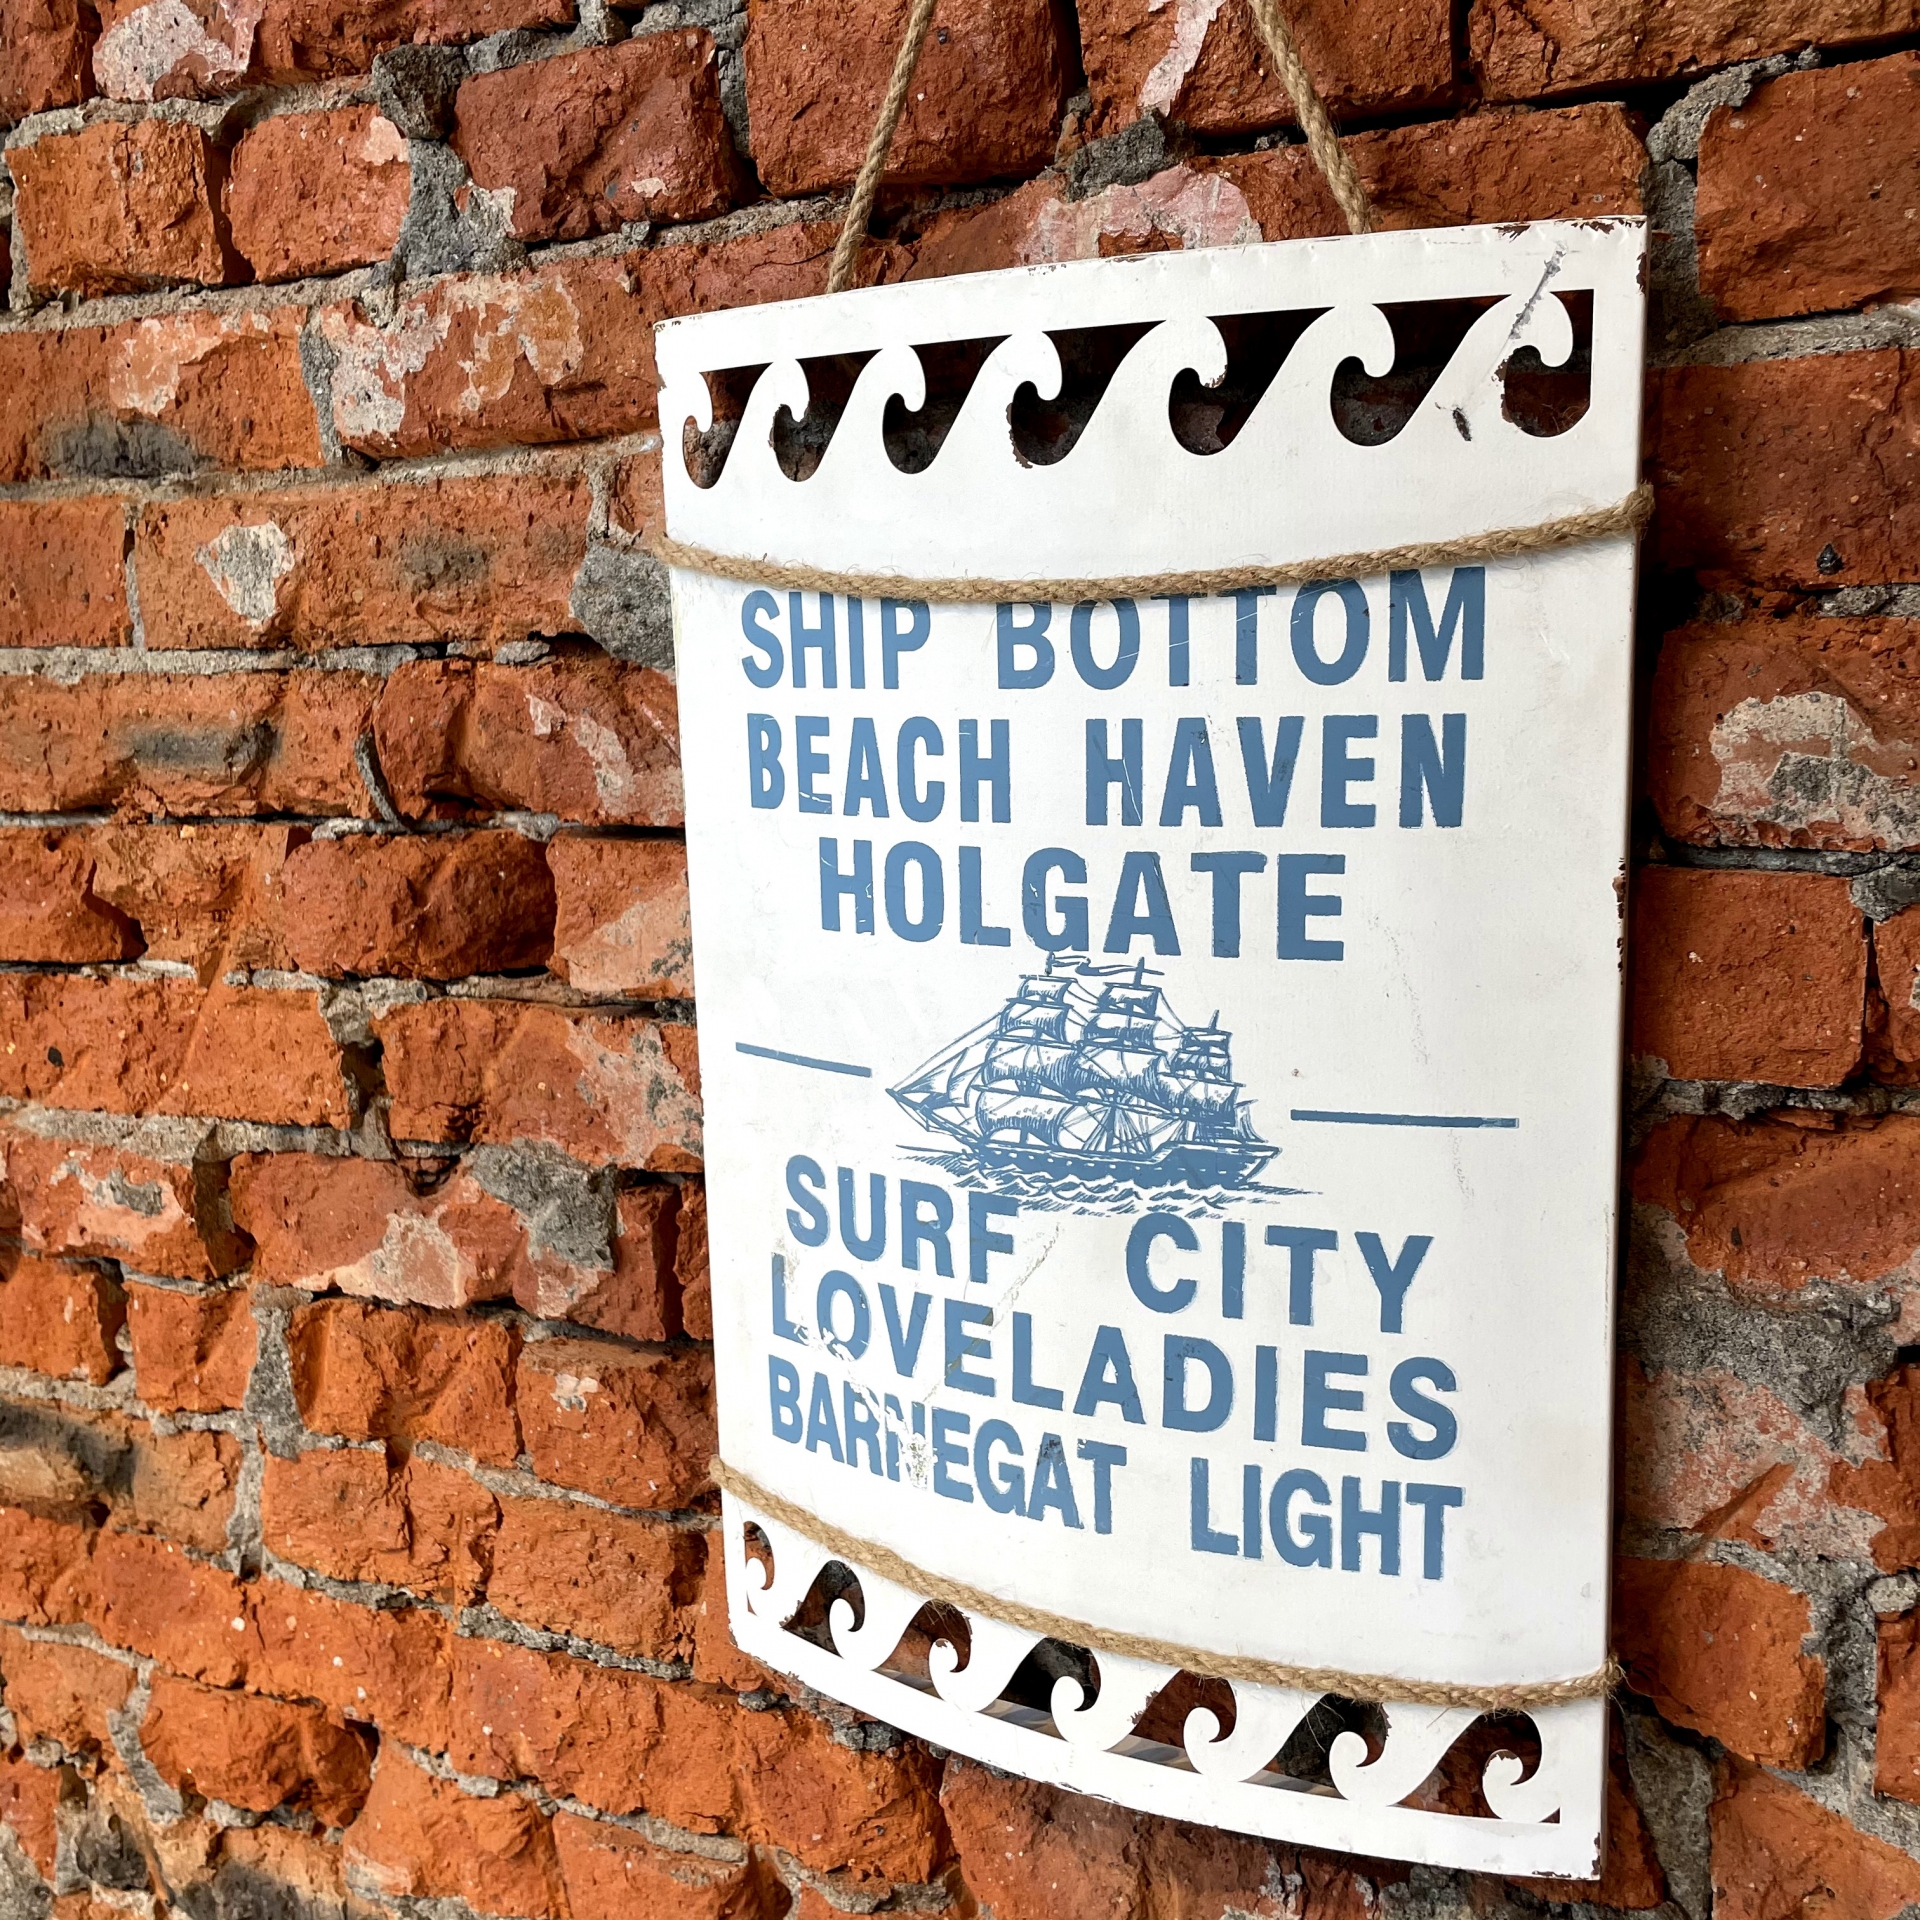 SHIP BOTTOM
BEACH HAVEN
HOLGATE
SURF CITY
LOVELADIES
BARNEGAT LIGHT